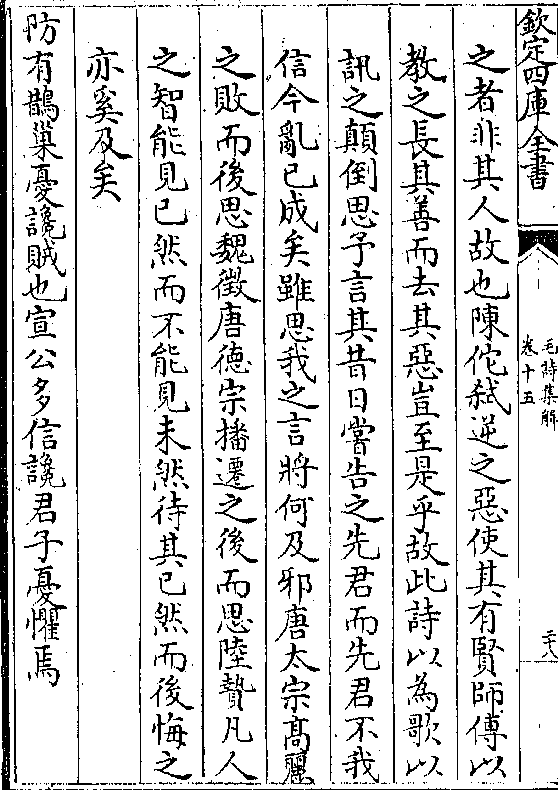 欽定四庫全書
毛詩集解
卷十五
二十八
之者非其人故也陳佗弑逆之惡使其有賢師傅以
教之長其善而去其惡豈至是乎故此詩以為歌以
訊之顛倒思予言其昔日嘗告之先君而先君不我
信今亂已成矣雖思我之言將何及邪唐太宗髙麗
之敗而後思魏徵唐德宗播遷之後而思陸贄凡人
之智能見已然而不能見未然待其已然而後悔之
亦奚及矣
防有鵲巢憂讒賊也宣公多信讒君子憂懼焉